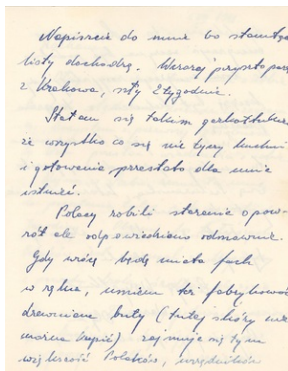 Napiszcie do mnie bo stamtąd
listy dochodzą. Wczoraj przyszła
z Krakowa, szły 2 tygodnie.
Stałam się takim
że wszystko co się nie tyczy kuchni
i gotowania przestało dla mnie
istnieć.
Polacy robili starania o pow-
rót ale odpowiedziano odmownie.
Gdy wrócę będę miała fach
w ręku, umiem też fabrykować
drewniane buty (tutaj skóry nie
można kupić) zajmuje się tym
większość Polaków, urzędników